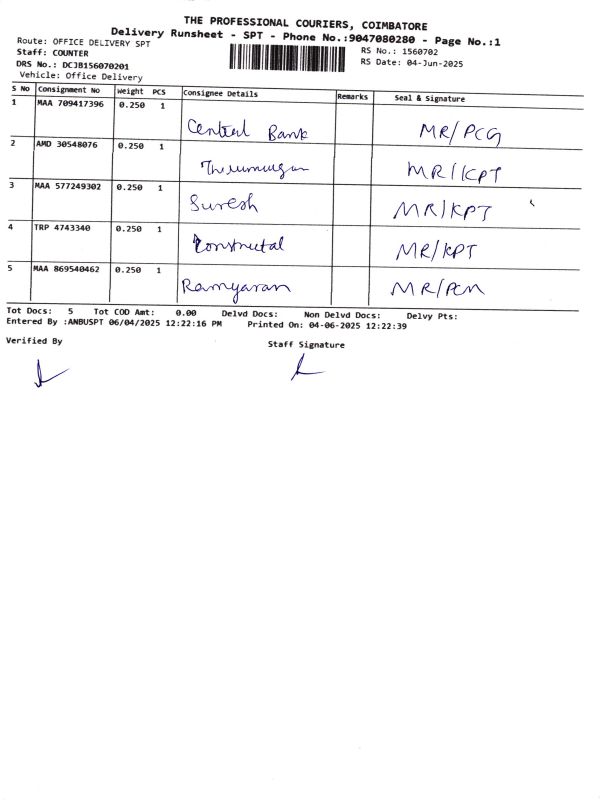 THE PROFESSIONAL COURIERS, COIMBATORE
Delivery Runsheet - SPT - Phone No.:9047080280 - Page No.:1
Route: OFFICE DELIVERY SPT
Staff: COUNTER
DRS No.: DCJB156070201
Vehicle: Office Delivery
RS No.: 1560702
RS Date: 04-Jun-2025
S No Consignment No Weight PCS Consignee Details Remarks Seal & Signature
1 MAA 709417396 0.250 1 Central Bank MR/PCG
2 AMD 30548076 0.250 1 MR/KPT
3 MAA 577249302 0.250 1 Suresh MR/KPT
4 TRP 4743340 0.250 1 MR/KPT
5 MAA 869540462 0.250 1
Tot Docs: 5 Tot COD Amt: 0.00 Delvd Docs: Non Delvd Docs: Delvy Pts:
Entered By :ANBUSPT 06/04/2025 12:22:16 PM Printed On: 04-06-2025 12:22:39
Verified By Staff Signature